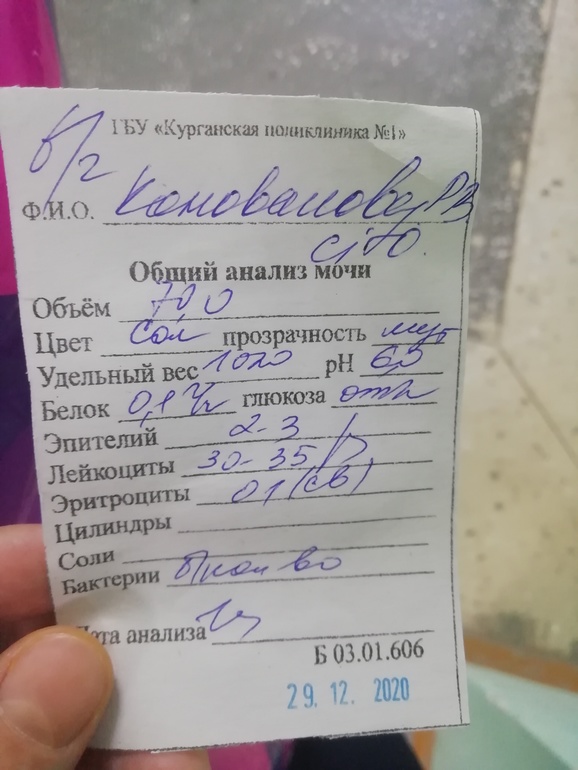 ГБУ «Курганская поликлиника №1»
б/г
Ф.И.О. Коновалова
cito
Общий анализ мочи
Объём 70,0
Цвет сол прозрачность мут
Удельный вес 1020 pH 6,5
Белок 0,1 глюкоза отр
Эпителий 2-3
Лейкоциты 30-35
Эритроциты 0-1 (св)
Цилиндры
Соли
Бактерии
Дата анализа
Б 03.01.606
29.12.2020